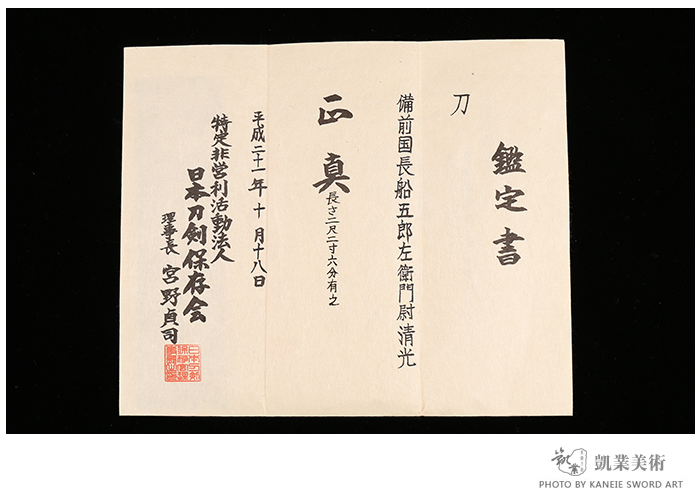 鑑定書
刀
備前国長船五郎左衛門尉清光
正真
長さ二尺二寸六分有之
平成二十一年十月十八日
特定非営利活動法人
日本刀剣保存会
理事長 宮野貞司
凱業美術
PHOTO BY KANEIE SWORD ART